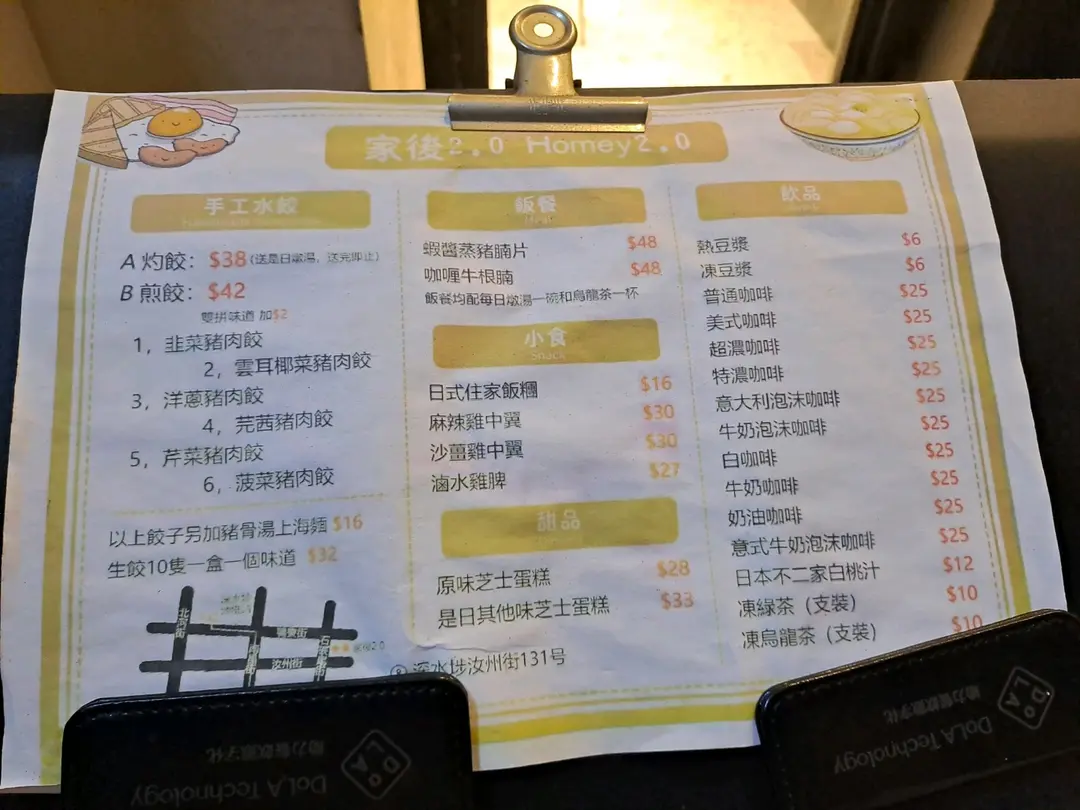 家後2.0 Homey2.0
手工水餃
A 灼餃： $38 (送是日燉湯，送完即止)
B 煎餃： $42
雙拼味道 加$2
1，韭菜豬肉餃
2，雲耳椰菜豬肉餃
3，洋蔥豬肉餃
4，芫茜豬肉餃
5，芹菜豬肉餃
6，菠菜豬肉餃
以上餃子另加豬骨湯上海麵 $16
生餃10隻一盒一個味道 $32
北河街
汝州街
家後2.0
飯餐
蝦醬蒸豬腩片 $48
咖喱牛根腩 $48
飯餐均配每日燉湯一碗和烏龍茶一杯
小食
Snack
日式住家飯糰 $16
麻辣雞中翼 $30
沙薑雞中翼 $30
滷水雞脾 $27
甜品
原味芝士蛋糕 $28
是日其他味芝士蛋糕 $33
深水埗汝州街131号
飲品
熱豆漿 $6
凍豆漿 $6
普通咖啡 $25
美式咖啡 $25
超濃咖啡 $25
特濃咖啡 $25
意大利泡沫咖啡 $25
牛奶泡沫咖啡 $25
白咖啡 $25
牛奶咖啡 $25
奶油咖啡 $25
意式牛奶泡沫咖啡 $25
日本不二家白桃汁 $12
凍緑茶（支裝） $10
凍烏龍茶（支裝） $10
DoLA Technology
DoLA Technology